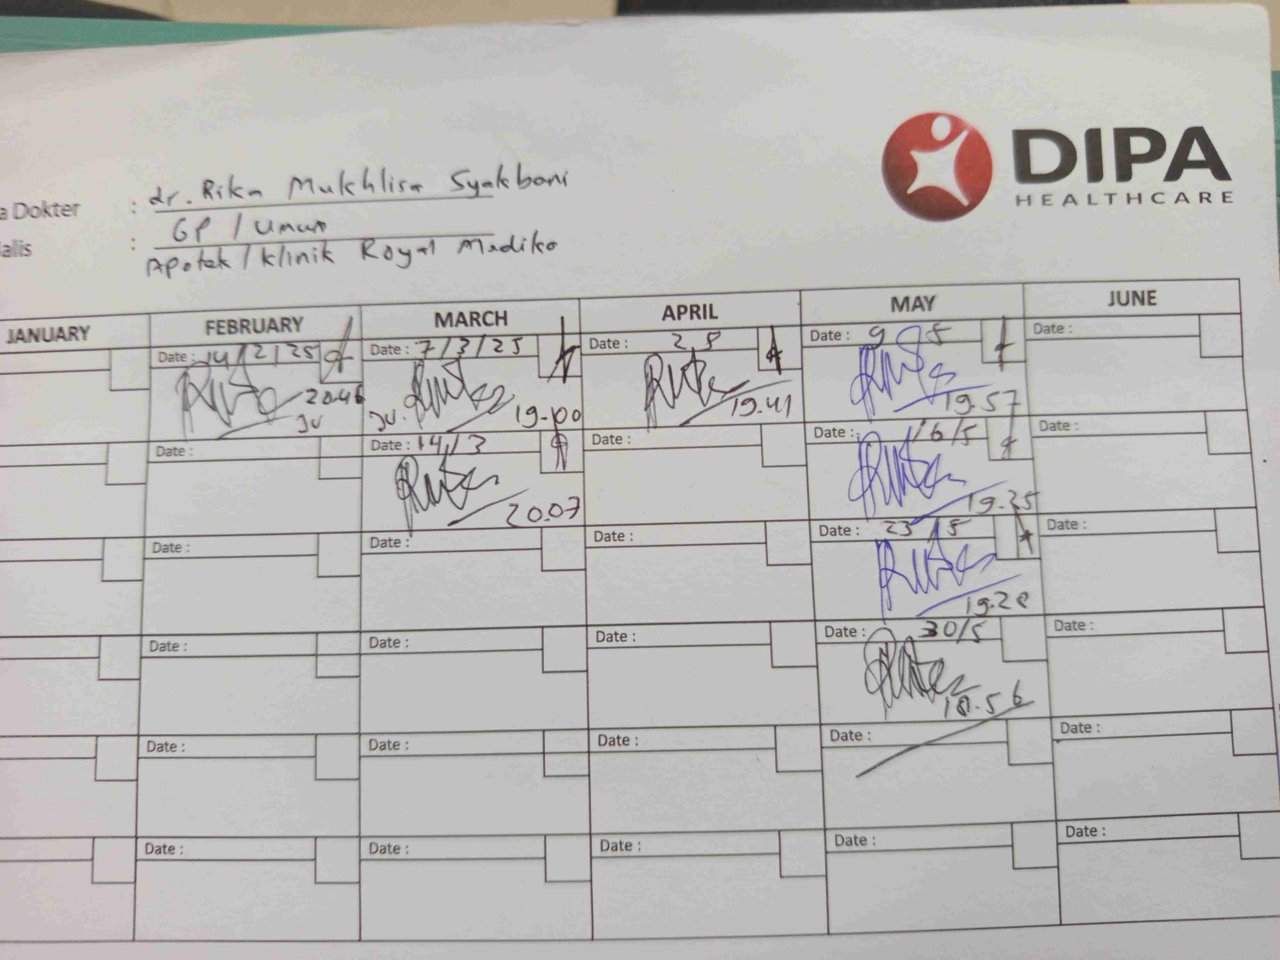 DIPA
HEALTHCARE
a Dokter : dr. Rika Mukhlisa Syakboni
alis : GP / Umum
Apotek / Klinik Royal Medika
JANUARY FEBRUARY MARCH APRIL MAY JUNE
Date : 14/2/25 Date : 7/3/25 Date : Date : 9 5 Date :
20.46 19.00 19.41 19.57
Date : Date : 14/3 Date : Date : 16/5 Date :
20.07 19.25
Date : Date : Date : Date : 23/5 Date :
19.20
Date : Date : Date : Date : 30/5 Date :
18.56
Date : Date : Date : Date : Date :
Date : Date : Date : Date : Date :